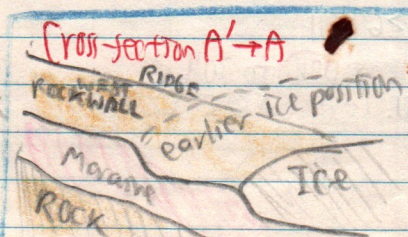 Cross-section A'→A
RIDGE
WEST
ROCKWALL
earlier ice position
Moraine
Ice
ROCK